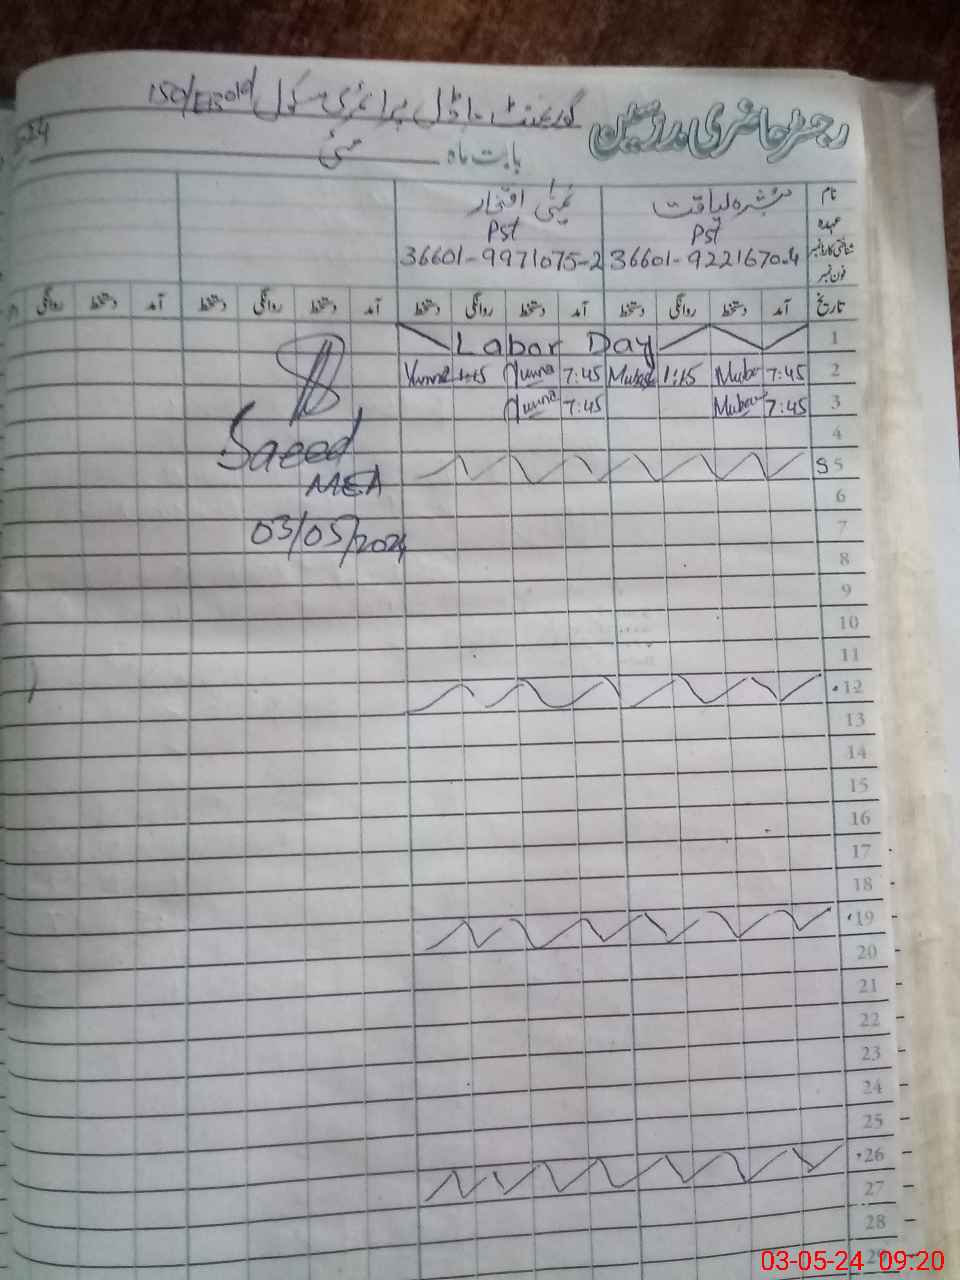 رجسٹر حاضری مدرسین گورنمنٹ ماڈل پرائمری سکول 150/EB
بابت ماہ مئی
نام مبشرہ لیاقت یمنیٰ افتخار
عہدہ Pst Pst
شناختی کارڈ نمبر 36601-9221670-4 36601-9971075-2
فون نمبر
تاریخ آمد دستخط روانگی دستخط آمد دستخط روانگی دستخط آمد دستخط روانگی دستخط آمد دستخط روانگی
1 Labor Day
2 7:45 1:15 7:45 1:15
3 7:45 7:45
4
S 5
6
7
8
9
10
11
12
13
14
15
16
17
18
19
20
21
22
23
24
25
26
27
28
29
Saeed
MEA
03/05/2024
03-05-24 09:20